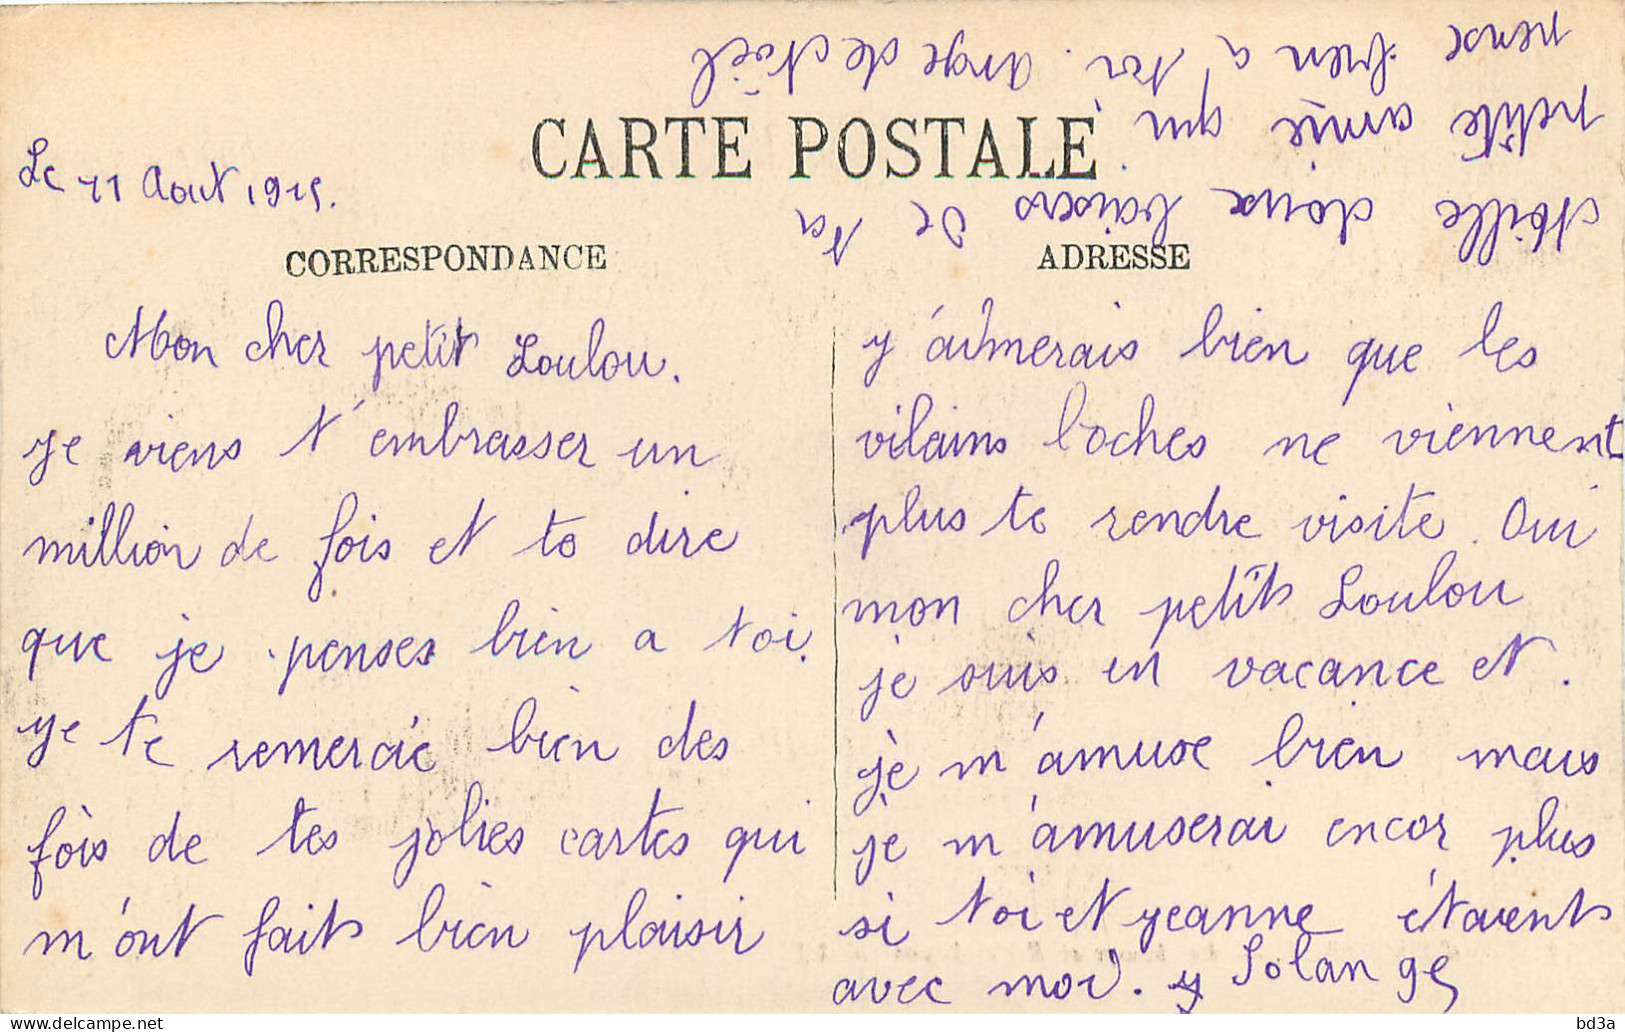 CARTE POSTALE
Le 11 Aout 1915.
CORRESPONDANCE
ADRESSE
Mon cher petit Loulou.
je viens t'embrasser un
million de fois et te dire
que je penses bien a toi.
je te remercie bien des
fois de tes jolies cartes qui
m'ont fait bien plaisir
j'aimerais bien que les
vilains boches ne viennent
plus te rendre visite. Oui
mon cher petit Loulou
je suis en vacance et.
je m'amuse bien mais
je m'amuserai encor plus
si toi et jeanne étaient
avec moi. Solange
Mille doux baisers de ta
petite amie qui
pense bien a toi. ange de Noël
bd3a